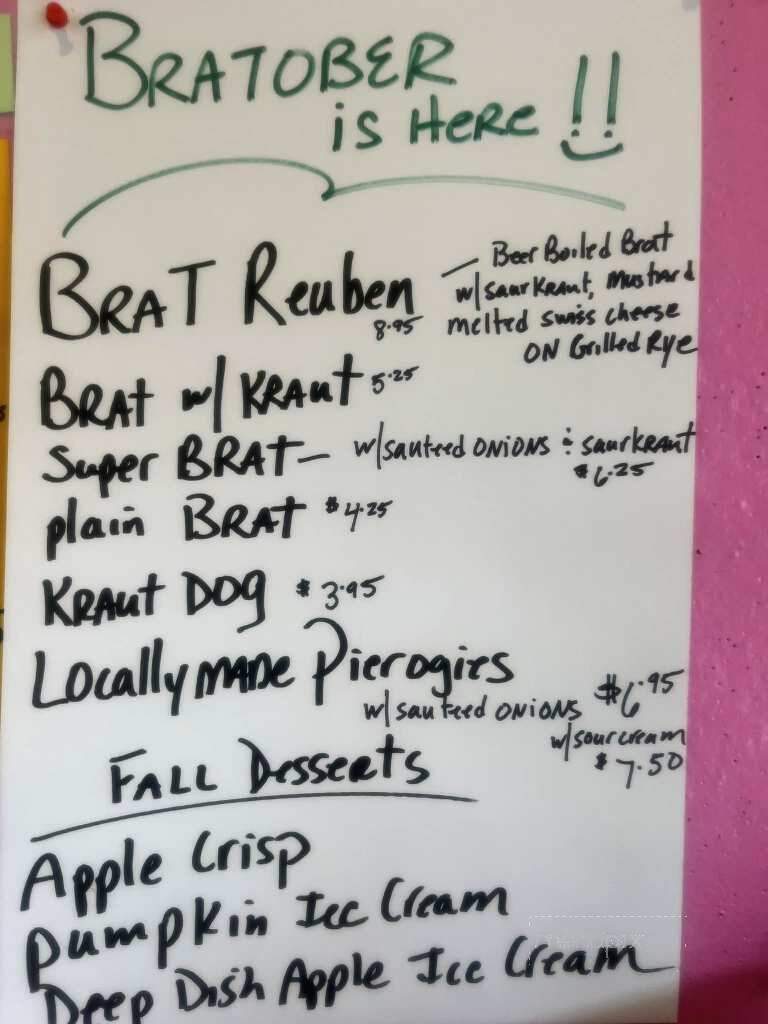 BRATOBER
is HERE !!
BRAT Reuben 8.95
Beer Boiled Brat
w/saurKRAUT, Mustard
melted swiss cheese
ON Grilled Rye
BRAT w/ KRAUT 5.25
Super BRAT— w/sauteed ONIONS & saurKRAUT
$6.25
plain BRAT $4.25
KRAUT DOG $3.95
Locally MADE Pierogies $6.95
w/sauteed ONIONS
w/sourcream
$7.50
FALL Desserts
Apple Crisp
Pumpkin Ice Cream
Deep Dish Apple Ice Cream